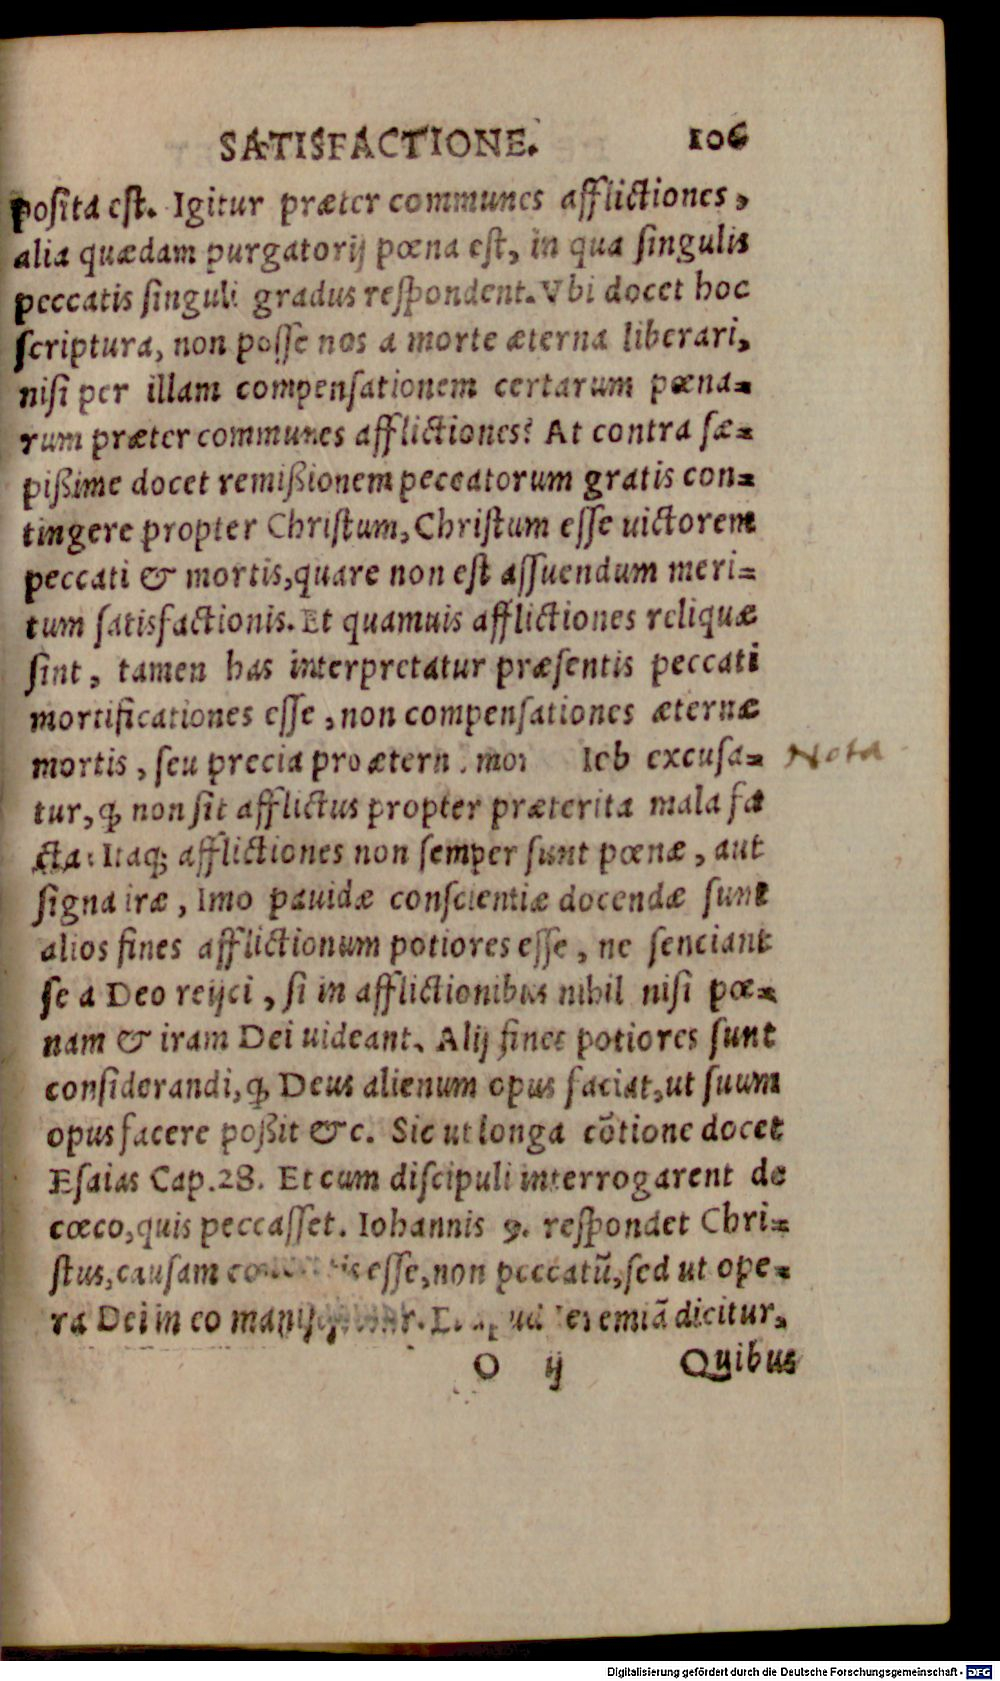 SATISFACTIONE. 106
posita est. Igitur præter communes afflictiones,
alia quædam purgatorij pœna est, in qua singulis
peccatis singuli gradus respondent. Vbi docet hoc
scriptura, non posse nos a morte æterna liberari,
nisi per illam compensationem certarum pœna=
rum præter communes afflictiones? At contra sæ=
pißime docet remißionem peccatorum gratis con=
tingere propter Christum, Christum esse uictorem
peccati & mortis, quare non est assuendum meri=
tum satisfactionis. Et quamuis afflictiones reliquæ
sint, tamen has interpretatur præsentis peccati
mortificationes esse, non compensationes æternæ
mortis, seu precia pro ætern mor Iob excusa=
Nota
tur, ꝙ non sit afflictus propter præterita mala fa
cta: Itaqꝫ afflictiones non semper sunt pœnæ, aut
signa iræ, Imo pauidæ conscientiæ docendæ sunt
alios fines afflictionum potiores esse, ne senciant
se a Deo reijci, si in afflictionibus nihil nisi pœ=
nam & iram Dei uideant. Alij fines potiores sunt
considerandi, ꝙ Deus alienum opus faciat, ut suum
opus facere poßit &c. Sic ut longa cōtione docet
Esaias Cap. 28. Et cum discipuli interrogarent de
cœco, quis peccasset. Iohannis 9. respondet Chri=
stus, causam esse, non peccatū, sed ut ope=
ra Dei in eo Ieremiā dicitur,
O ij Quibus
Digitalisierung gefördert durch die Deutsche Forschungsgemeinschaft - DFG